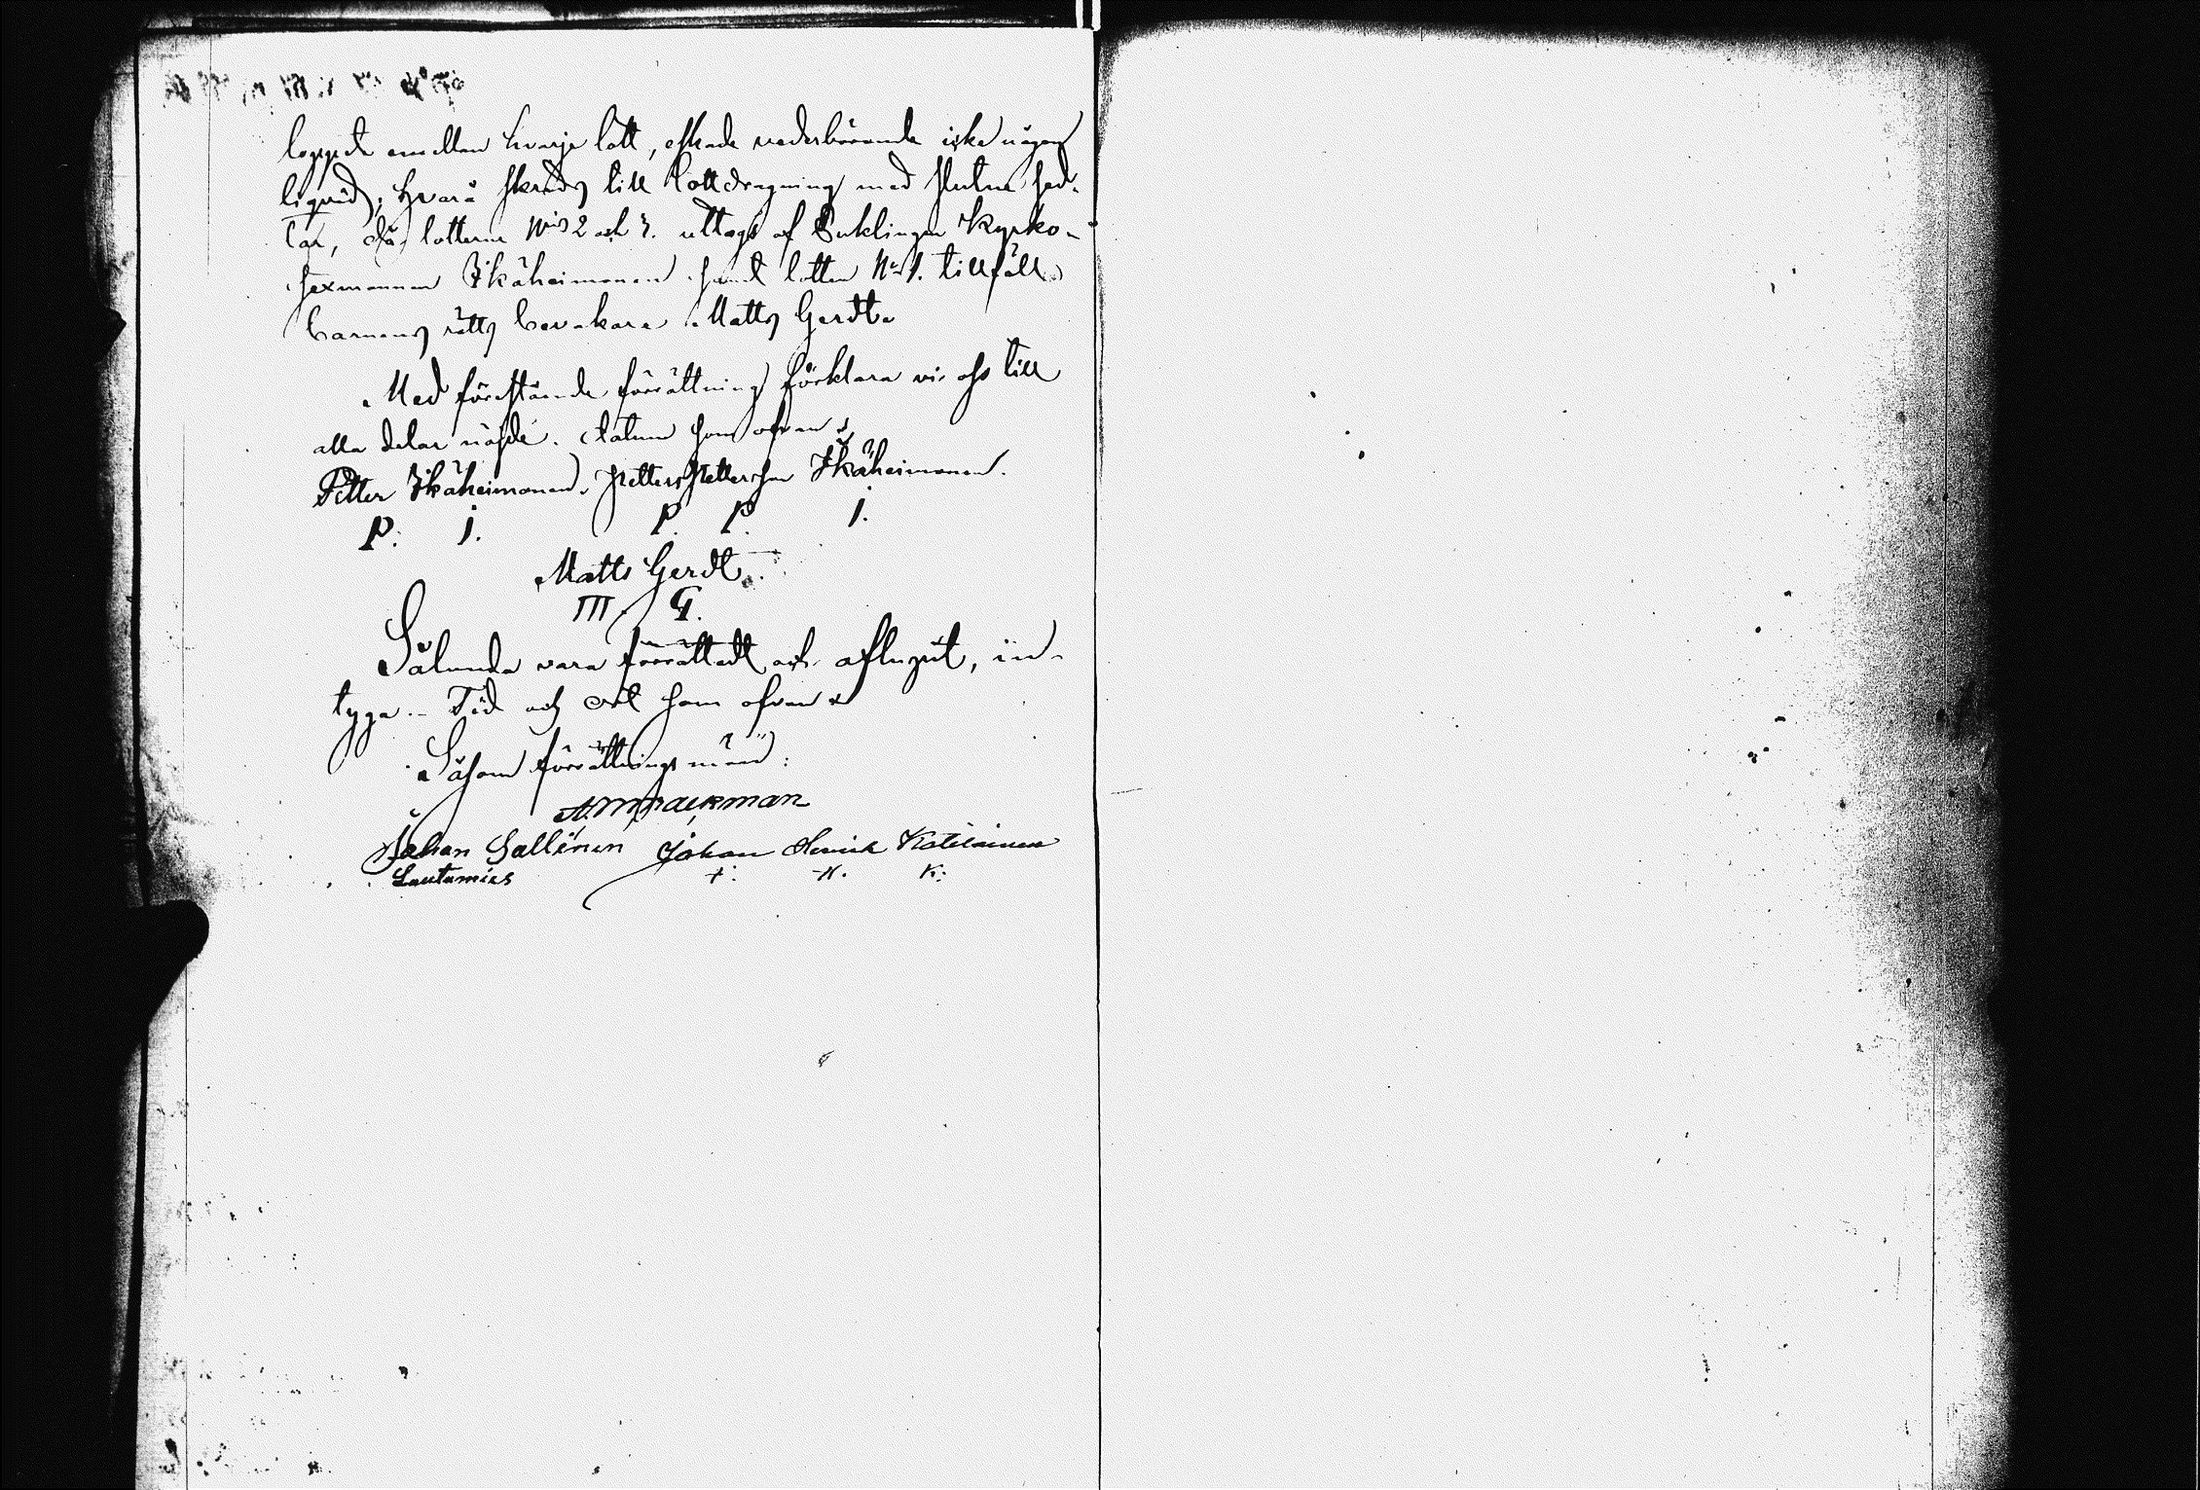 loppet emellan hvarje lott, eskade vederbörande icke någon
liqvid; hvarå skreds till lottdragning med slutna sed-
lar, då lotterne N:ris 2 och 3. uttogs af Enklingen Kyrko-
sexmannen Ikäheimonen samt lotten N:o 1. tillföll
barnens rätts bevakare Matts Gerdt.
Med förestående förrättning förklara vi oss till
alla delar nöjde. datum som ofvan
Petter Ikäheimonen. Petter Petterson Ikäheimonen.
P. I. P. P. I.
Matts Gerdt.
M. G.
Sålunda vara förrättadt och aflupit, in-
tyga.- Tid och Ort som ofvan
Såsom förrättningsmän:
Johan Sallinen Johan Henrik Katilainen
Lautamies H. K.